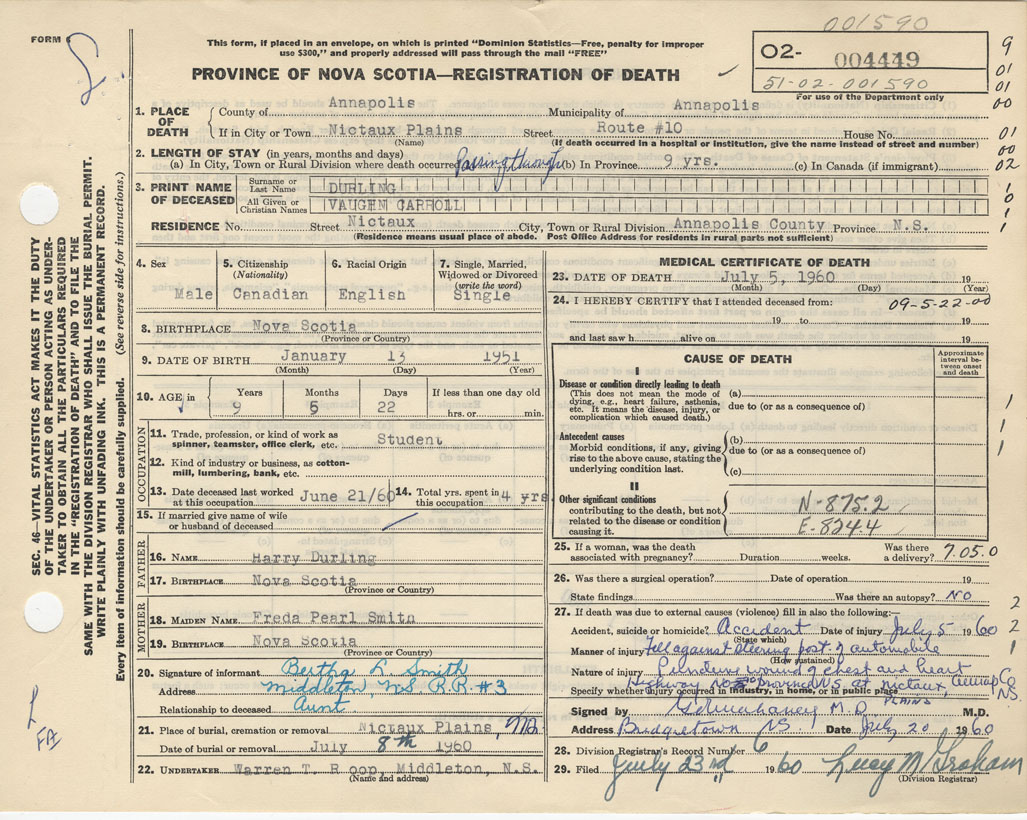 001590
FORM 6
This form, if placed in an envelope, on which is printed "Dominion Statistics—Free, penalty for improper
use $300," and properly addressed will pass through the mail "FREE"
PROVINCE OF NOVA SCOTIA—REGISTRATION OF DEATH
O2- 004449
51-02-001590
For use of the Department only
9
01
01
00
01
00
02
1
0
1
1. PLACE OF DEATH
County of Annapolis Municipality of Annapolis
If in City or Town Nictaux Plains Street Route #10 House No.
(Name) (If death occurred in a hospital or institution, give the name instead of street and number)
2. LENGTH OF STAY (in years, months and days)
(a) In City, Town or Rural Division where death occurred Passing through (b) In Province 9 yrs. (c) In Canada (if immigrant)
3. PRINT NAME OF DECEASED
Surname or Last Name DURLING
All Given or Christian Names VAUGHN CARROLL
RESIDENCE No. Street Nictaux City, Town or Rural Division Annapolis County Province N.S.
(Residence means usual place of abode. Post Office Address for residents in rural parts not sufficient)
4. Sex Male
5. Citizenship (Nationality) Canadian
6. Racial Origin English
7. Single, Married, Widowed or Divorced (write the word) Single
8. BIRTHPLACE Nova Scotia
(Province or Country)
9. DATE OF BIRTH January 13 1951
(Month) (Day) (Year)
10. AGE in Years 9 Months 5 Days 22 If less than one day old hrs. or min.
OCCUPATION
11. Trade, profession, or kind of work as spinner, teamster, office clerk, etc. Student
12. Kind of industry or business, as cotton-mill, lumbering, bank, etc.
13. Date deceased last worked at this occupation June 21/60 14. Total yrs. spent in this occupation 4 yrs
15. If married give name of wife or husband of deceased
FATHER
16. NAME Harry Durling
17. BIRTHPLACE Nova Scotia
(Province or Country)
MOTHER
18. MAIDEN NAME Freda Pearl Smith
19. BIRTHPLACE Nova Scotia
(Province or Country)
20. Signature of informant Bertha L Smith
Address Middleton, NS R.R. #3
Relationship to deceased Aunt
21. Place of burial, cremation or removal Nictaux Plains,
Date of burial or removal July 8th 1960
22. UNDERTAKER Warren T. Roop, Middleton, N.S.
(Name and address)
MEDICAL CERTIFICATE OF DEATH
23. DATE OF DEATH July 5, 1960 19
(Month) (Day) (Year)
24. I HEREBY CERTIFY that I attended deceased from: 09-5-22-00
19 to 19
and last saw h alive on 19
CAUSE OF DEATH
Approximate interval between onset and death
I
Disease or condition directly leading to death
(This does not mean the mode of dying, e.g., heart failure, asthenia, etc. It means the disease, injury, or complication which caused death.)
(a)
due to (or as a consequence of)
Antecedent causes
Morbid conditions, if any, giving rise to the above cause, stating the underlying condition last.
(b)
due to (or as a consequence of)
(c)
1
1
1
II
Other significant conditions
contributing to the death, but not related to the disease or condition causing it.
N-875.2
E-824.4
25. If a woman, was the death associated with pregnancy? Duration weeks. Was there a delivery? 7.05.0
26. Was there a surgical operation? Date of operation 19
State findings Was there an autopsy? NO
27. If death was due to external causes (violence) fill in also the following:—
Accident, suicide or homicide? Accident Date of injury July 5 1960
(State which)
Manner of injury Fell against steering post of automobile
(How sustained)
Nature of injury Puncture wound of chest and heart
Specify whether injury occurred in industry, in home, or in public place Highway No 10 at Nictaux PLAINS Annap Co NS.
2
2
1
Signed by M.D. M.D.
Address Bridgetown NS. Date July 20 1960
28. Division Registrar's Record Number 6
29. Filed July 23rd 1960 Lucy M Graham
(Division Registrar)
SEC. 46—VITAL STATISTICS ACT MAKES IT THE DUTY
OF THE UNDERTAKER OR PERSON ACTING AS UNDER-
TAKER TO OBTAIN ALL THE PARTICULARS REQUIRED
IN THE "REGISTRATION OF DEATH" AND TO FILE THE
SAME WITH THE DIVISION REGISTRAR WHO SHALL ISSUE THE BURIAL PERMIT.
WRITE PLAINLY WITH UNFADING INK. THIS IS A PERMANENT RECORD.
Every item of information should be carefully supplied. (See reverse side for instructions.)
FA